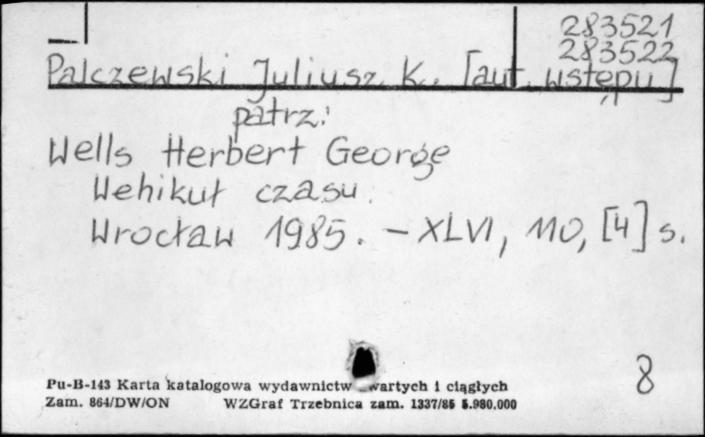 283521
283522
Palczewski Juliusz K. [aut. wstępu]
patrz:
Wells Herbert George
Wehikuł czasu.
Wrocław 1985. - XLVI, 110, [4] s.
8
Pu-B-143 Karta katalogowa wydawnictw zwartych i ciągłych
Zam. 864/DW/ON WZGraf Trzebnica zam. 1337/85 5.980.000